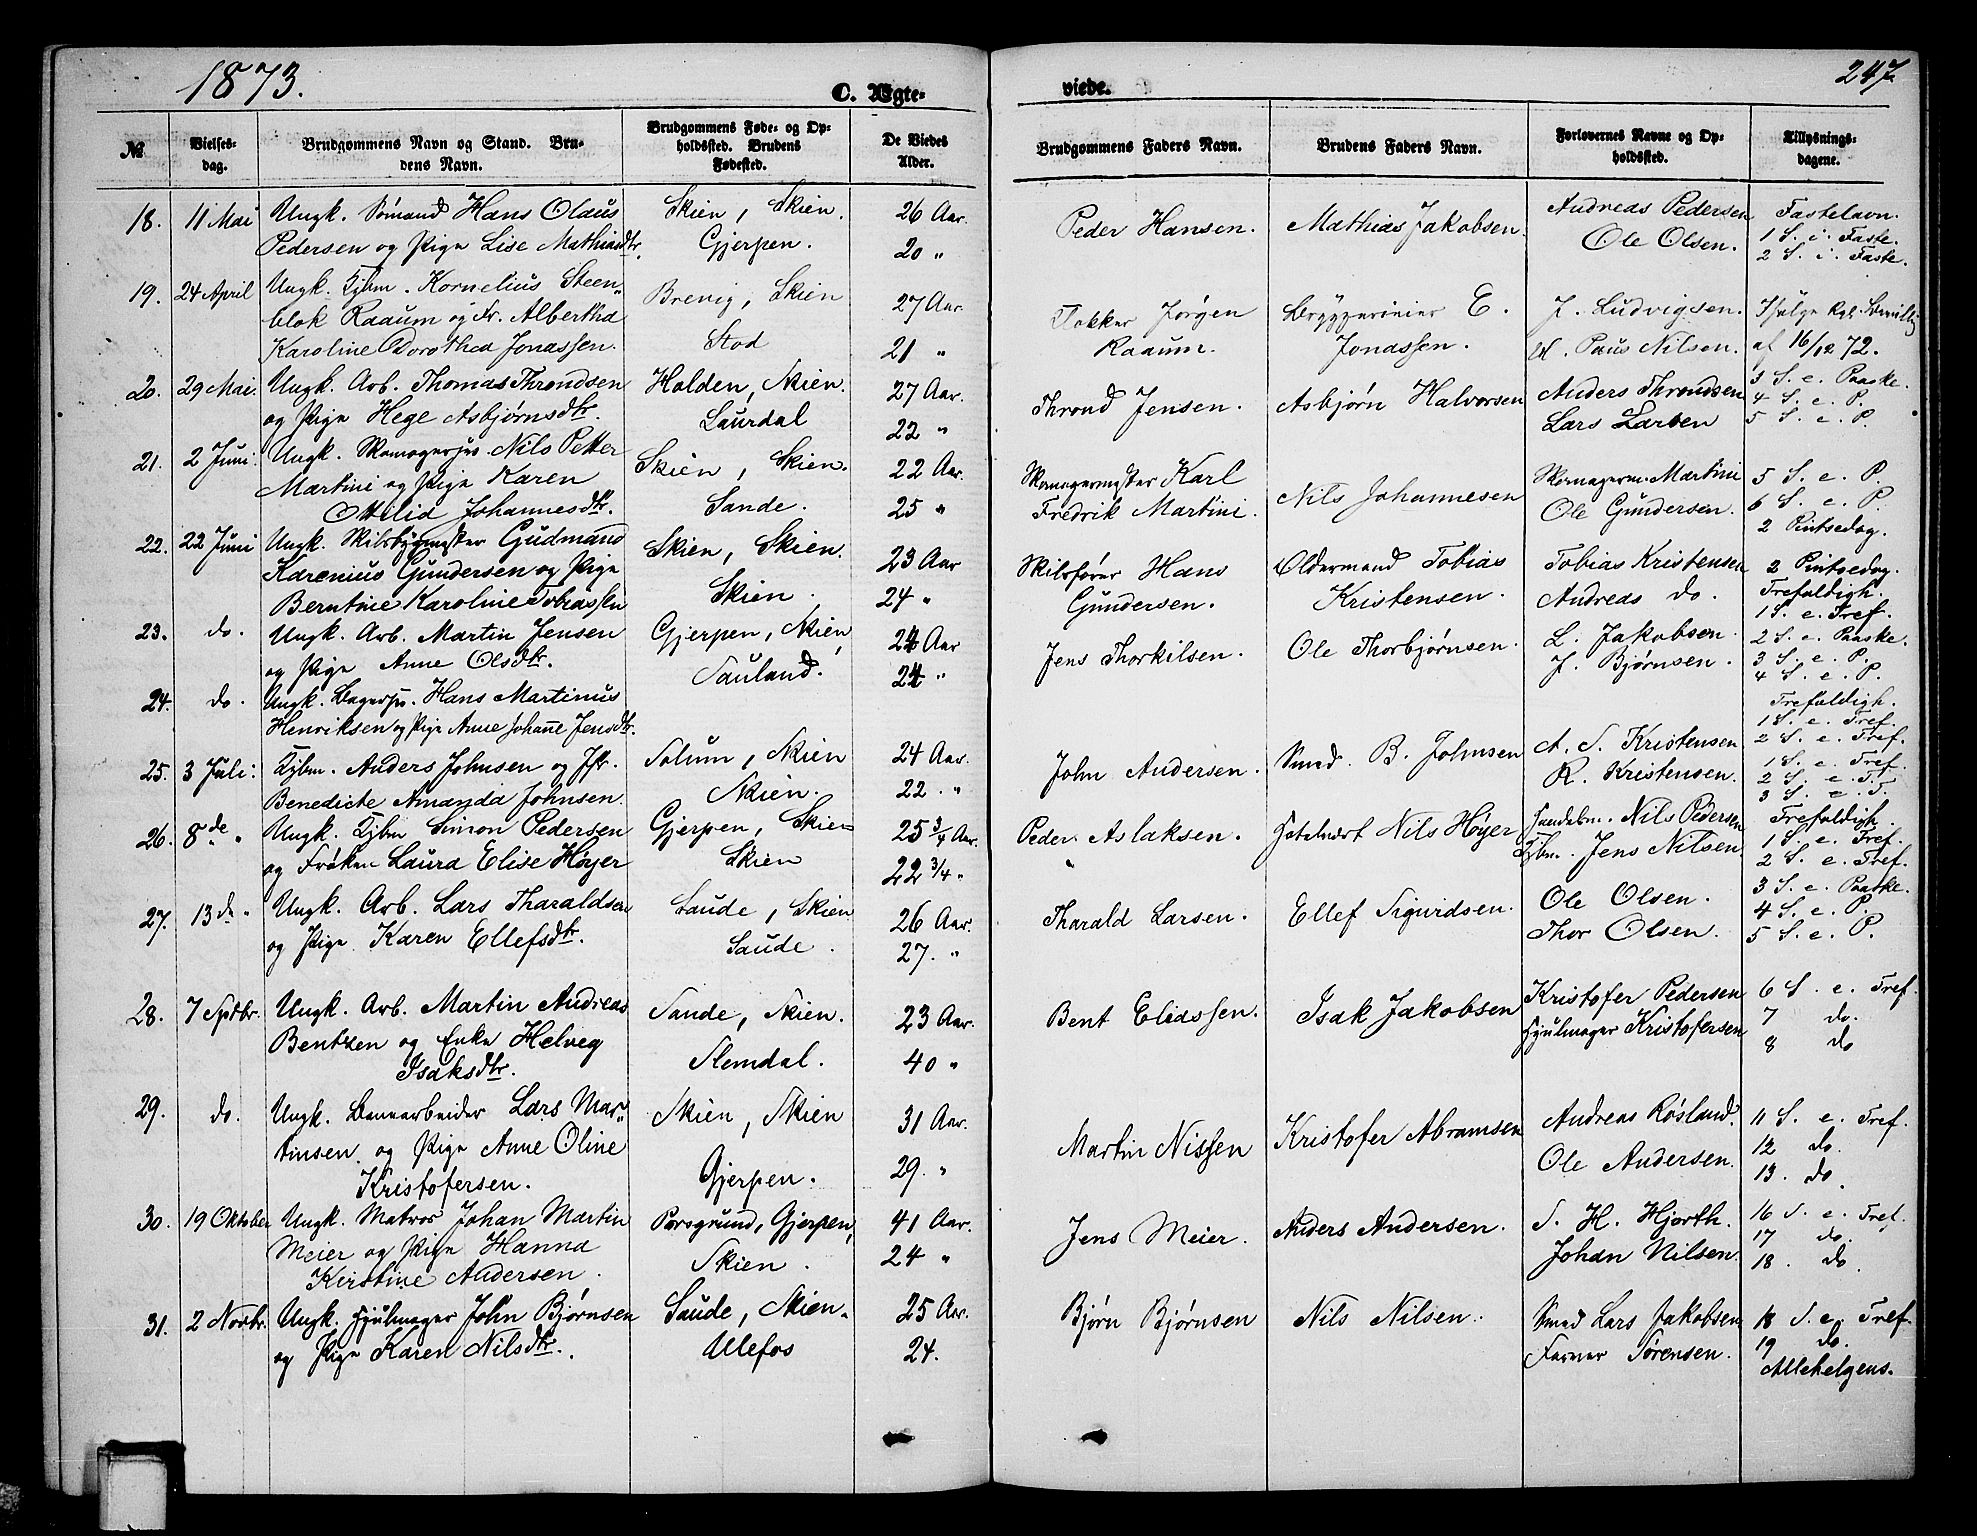 1873.
C. Ægte-
viede.
247
№
Vielses-
dag.
Brudgommens Navn og Stand. Bru-
dens Navn.
Brudgommens Føde- og Op-
holdssted. Brudens
Fødested.
De Viedes
Alder.
Brudgommens Faders Navn.
Brudens Faders Navn.
Forlovernes Navne og Op-
holdssted.
Tillysnings-
dagene.
18. 11 Mai Ungk. Sömand Hans Olaus
Pedersen og Pige Lise Mathiasdtr.
Skien, Skien.
Gjerpen.
26 Aar.
20 "
Peder Hansen.
Mathias Jakobsen.
Andreas Pedersen
Ole Olsen.
Fastelavn.
1 S. i. Faste.
2 S. i. Faste.
19. 24 April Ungk. Kjbm. Kornelius Steen-
blok Raaum og Fr. Albertha
Karoline Dorothea Jonassen.
Brevig, Skien
Stod
27 Aar
21 "
Jørgen
Raaum.
E.
Jonassen.
J. Ludvigsen.
Paus Nilsen.
Ifølge Kgl. Bevillg
af 16/12 72.
20. 29 Mai. Ungk. Arb. Thomas Throndsen
og Pige Hege Asbjørnsdtr.
Holden, Skien.
Laurdal
27 Aar.
22 "
Thrond Jensen.
Asbjørn Halvorsen
Anders Throndsen
Lars Larsen
3 S. e. Paaske.
4 S. e. P.
5 S. e. P.
21. 2 Juni. Ungk. Skomagersv. Nils Petter
Martini og Pige Karen
Ottilia Johannesdtr.
Skien, Skien.
Sande.
22 Aar.
25 "
Skomagermester Karl
Fredrik Martini.
Nils Johannesen
Skomagerm. Martini
Ole Gundersen.
5 S. e. P.
6 S. e. P.
2 Pintsedag.
22. 22 Juni Ungk. Skibsbygmester Gudmand
Karenius Gundersen og Pige
Berntine Karoline Tobiassen
Skien, Skien.
Skien.
23 Aar
24 "
Skibsfører Hans
Gundersen.
Oldermand Tobias
Kristensen.
Tobias Kristensen
Andreas do.
2 Pintsedag.
Trefoldigh.
1 S. e. Tref.
23. do. Ungk. Arb. Martin Jensen
og Pige Anne Olsdtr.
Gjerpen, Skien,
Sauland.
24 Aar
24 "
Jens Thorkilsen.
Ole Thorbjørnsen.
L. Jakobsen.
J. Bjørnsen.
2 S. e. Paaske.
3 S. e. P.
4 S. e. P.
24. do. Ungk. Hans Martinus
Henriksen og Pige Anne Johanne Jensdtr.
Trefoldigh.
1 S. e. Tref.
2 S. e. Tref.
25. 3 Juli. Kjbm. Anders Johnsen og Jfr.
Benedicte Amanda Johnsen.
Solum, Skien
Skien.
24 Aar.
22. "
John Andersen.
Smed. B. Johnsen
A. S. Kristensen
R. Kristensen.
1 S. e. Tref.
2 S. e. T.
3 S. e. T.
26. 8de " Ungk. Kjbm Simon Pedersen
og Frøken Laura Elise Høyer
Gjerpen, Skien
Skien
25 3/4 Aar.
22 3/4 "
Peder Aslaksen.
Nils Høyer
Handelsm. Nils Pedersen
Kjbm. Jens Nilsen.
Trefoldigh.
1 S. e. Tref.
2 S. e. Tref.
27. 13de " Ungk. Arb. Lars Tharaldsen
og Pige Karen Ellefsdtr.
Saude, Skien
Saude.
26 Aar.
27. "
Tharald Larsen.
Ellef Sigurdsen.
Ole Olsen.
Thor Olsen.
3 S. e. Paaske.
4 S. e. P.
5 S. e. P.
28. 7 Sptbr. Ungk. Arb. Martin Andreas
Bentzen og Enke Helveg
Isaksdtr.
Sande, Skien.
Slemdal.
23 Aar.
40 "
Bent Eliassen.
Isak Jakobsen
Kristofer Pedersen
Hjulmager Kristofersen
6 S. e. Tref.
7 do.
8 do
29. do. Ungk. Lars Mar-
tinsen og Pige Anne Oline
Kristofersen.
Skien, Skien
Gjerpen.
31 Aar.
29. "
Martin Nissen
Kristofer Abramsen
Andreas Røsland.
Ole Andersen.
11 S. e. Tref.
12 do.
13. do.
30. 19 Oktober Ungk. Matros Johan Martin
Meier og Pige Hanna
Kirstine Andersen.
Porsgrund, Gjerpen,
Skien.
41 Aar.
24 "
Jens Meier.
Anders Andersen.
S. H. Hjorth.
Johan Nilsen.
16 S. e. Tref.
17 do.
18. do.
31. 2 Novbr. Ungk. Hjulmager John Bjørnsen
og Pige Karen Nilsdtr.
Saude, Skien.
Ullefos
25 Aar.
24.
Bjørn Bjørnsen
Nils Nilsen.
Smed Lars Jakobsen
Farver Sørensen.
18 S. e. Tref.
19 do.
Allehelgens.